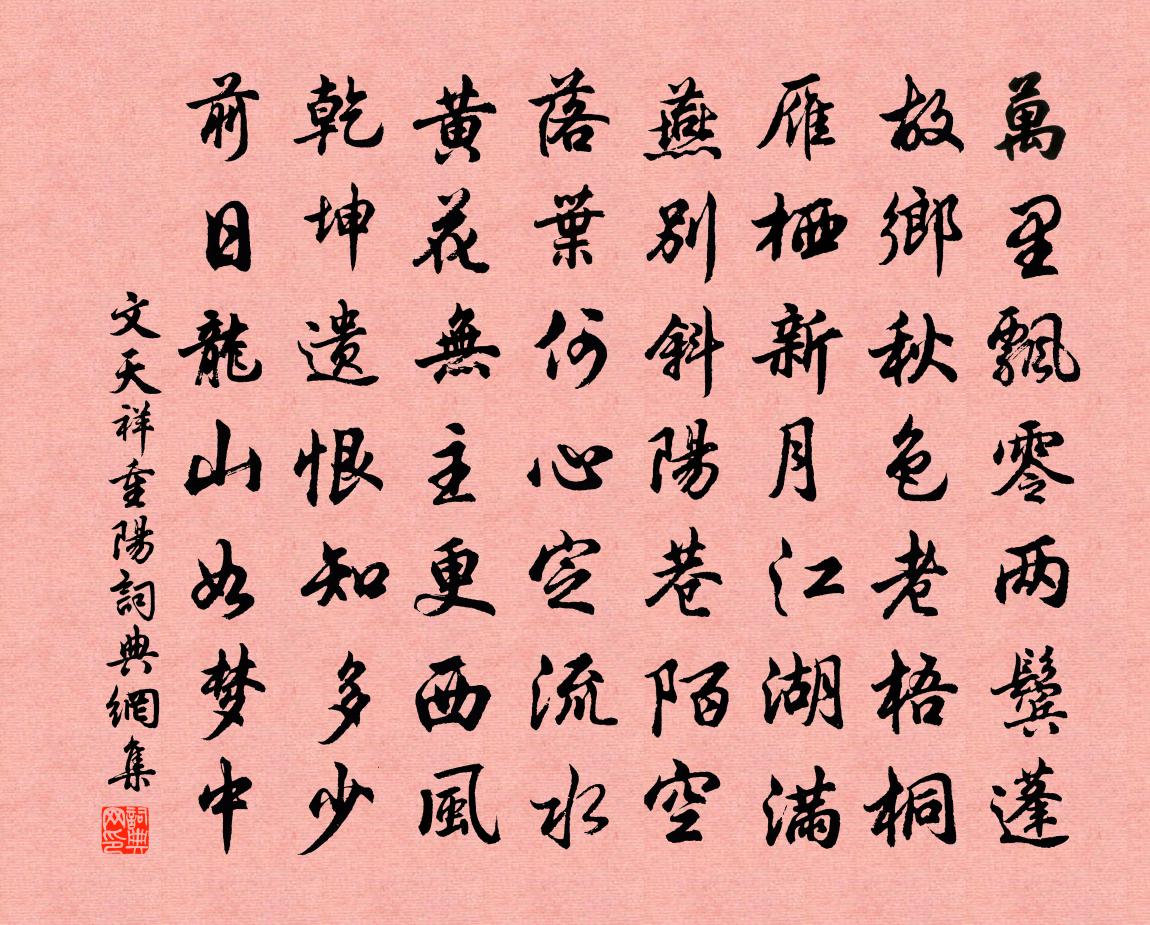 萬里飄零兩鬢蓬
故鄉秋色老梧桐
雁栖新月江湖滿
燕別斜陽巷陌空
落葉何心定流水
黃花無主更西風
乾坤遺恨知多少
前日龍山如梦中
文天祥重陽詞典網集
詞典网印